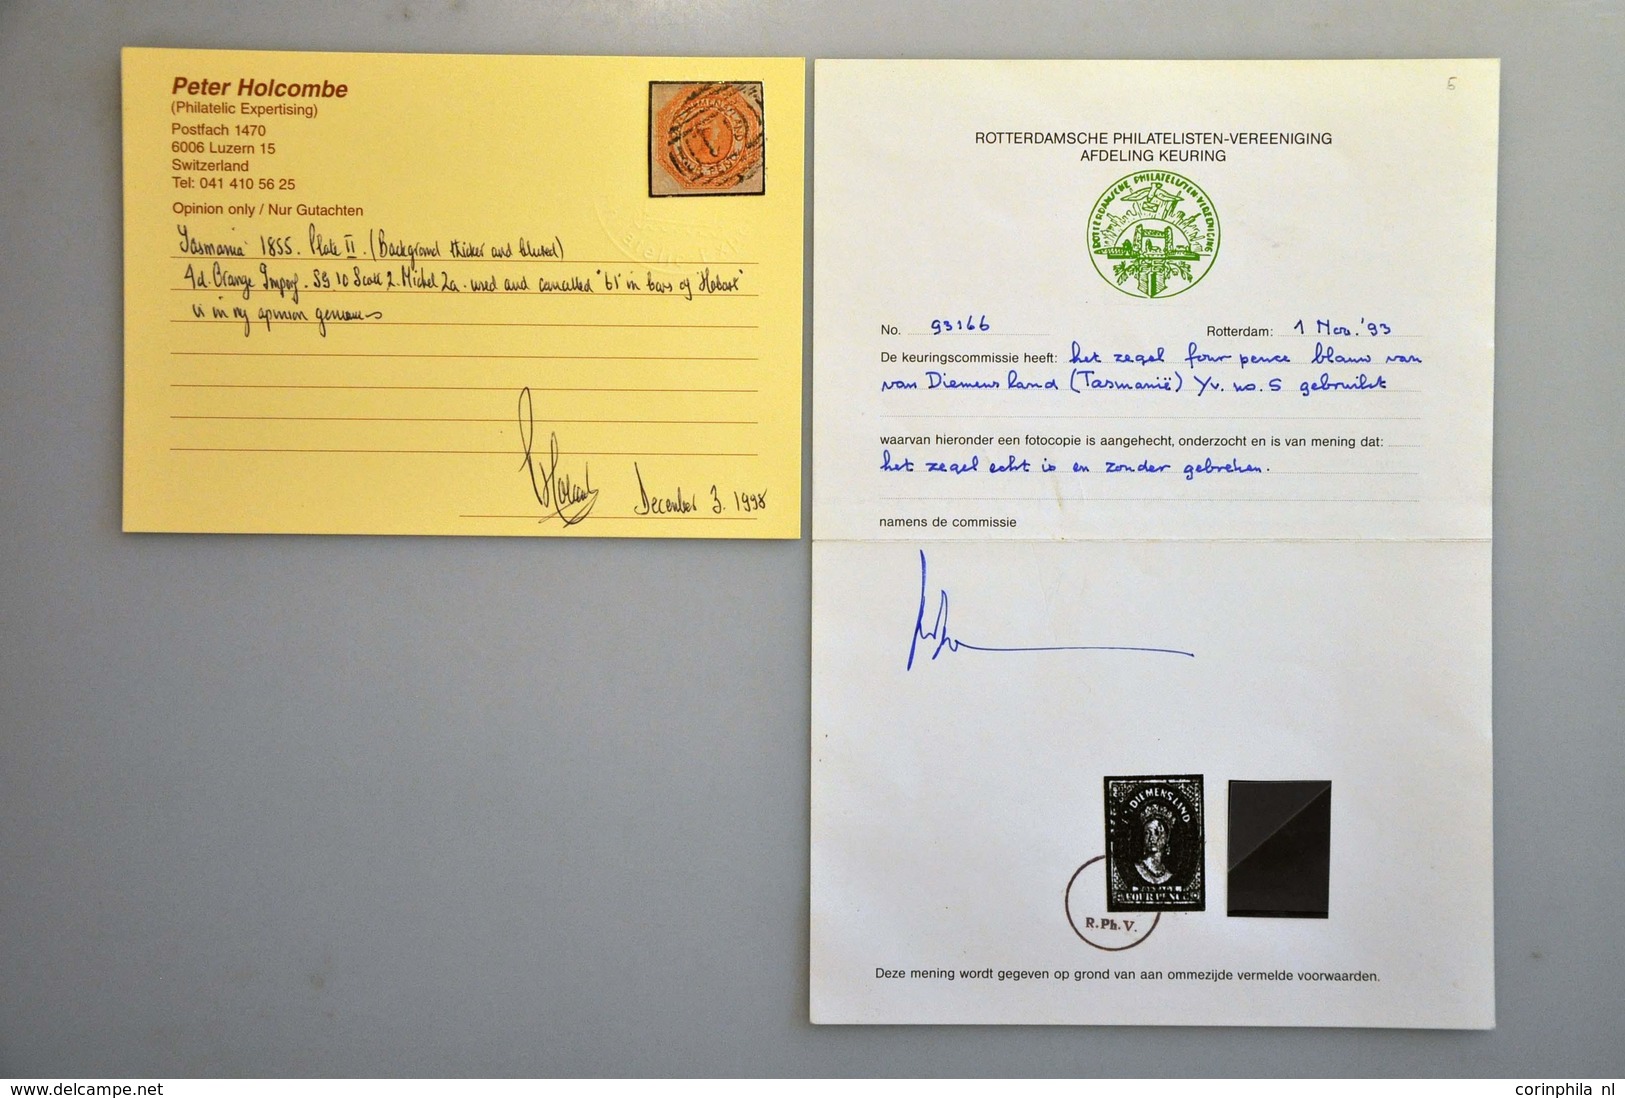 Peter Holcombe
(Philatelic Expertising)
Postfach 1470
6006 Luzern 15
Switzerland
Tel: 041 410 56 25
Opinion only / Nur Gutachten
Tasmania 1855. Plate II. (Background thicker and blurred)
4d. Orange Imperf. SG 10 Scott 2. Michel 2a. used and cancelled "61" in bars of "Hobart"
is in my opinion genuine
December 3. 1998
DIEMENSLAND
5
ROTTERDAMSCHE PHILATELISTEN-VEREENIGING
AFDELING KEURING
ROTTERDAMSCHE PHILATELISTEN-VEREENIGING
No. 93166
Rotterdam: 1 Nov. '93
De keuringscommissie heeft: het zegel four pence blauw van
van Diemensland (Tasmanië) Yv. no. 5 gebruikt
waarvan hieronder een fotocopie is aangehecht, onderzocht en is van mening dat:
het zegel echt is en zonder gebreken.
namens de commissie
DIEMENSLAND
FOUR PENCE
R.Ph.V.
Deze mening wordt gegeven op grond van aan ommezijde vermelde voorwaarden.
www.delcampe.net
corinphila nl